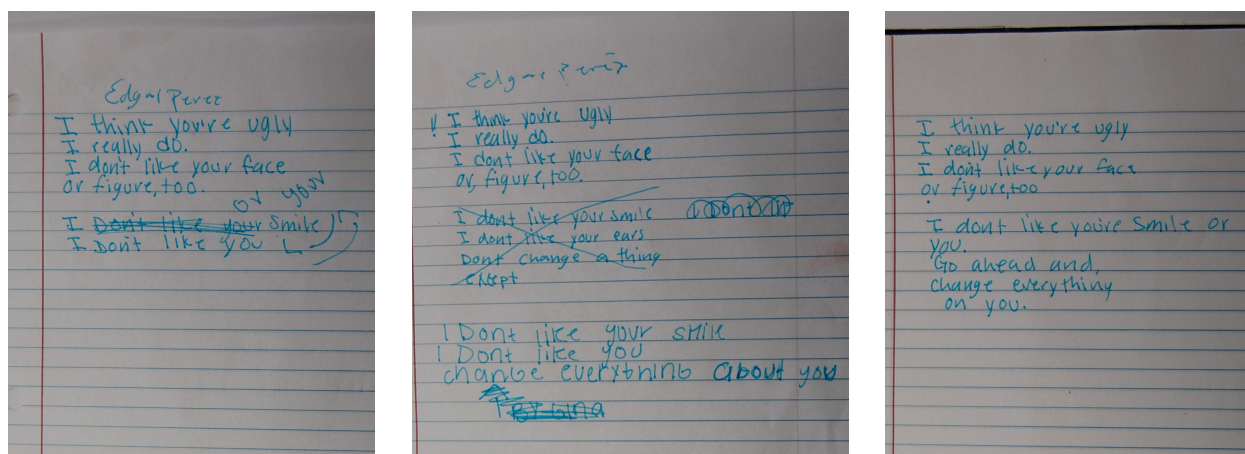 Edgar Perez
I think you're ugly
I really do.
I don't like your face
or figure, too.
or your
I Don't like your smile
I Don't like you
Edgar Perez
! I think you're ugly
I really do.
I dont like your face
or, figure, too.
I dont like your smile
I dont like your ears
Dont change a thing
exept
I Dont like your smile
I Dont like you
change everything about you
I think you're ugly
I really do.
I dont like your face
or figure, too
I dont like you're smile or
you.
Go ahead and,
change everything
on you.